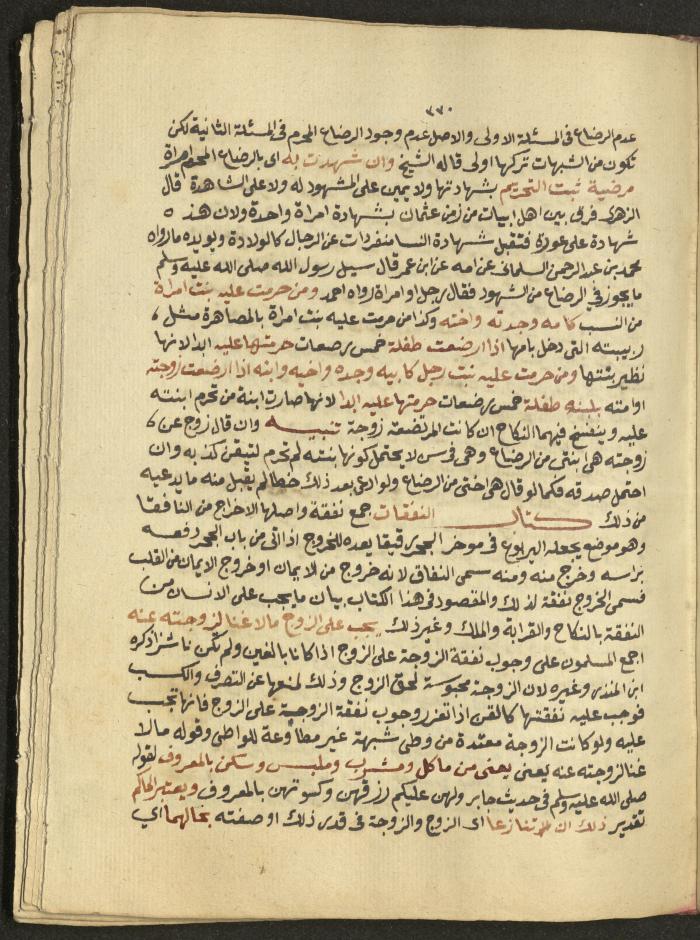 ٣٣٠
عدم الرضاع في المسئلة الاولى والاصل عدم وجود الرضاع المحرم في المسئلة الثانية لكن
تكون من الشبهات تركها اولى قاله الشيخ وان شهدت به اى بالرضاع المحرم امراة
مرضية ثبت التحريم بشهادتها ولا يمين على المشهود له ولا على الشاهدة قال
الزهرى فرق بين اهل ابيات من زمن عثمان بشهادة امراة واحدة ولان هذه
شهادة على عورة فتقبل شهادة النسا منفردات عن الرجال كالولادة ويويده مارواه
محمد بن عبد الرحمن السلمانى عن امه عن ابن عمر قال سيل رسول الله صلى الله عليه وسلم
ما يجوز في الرضاع من الشهود فقال رجل او امراة رواه احمد ومن حرمت عليه بنت امراة
من النسب كامه وجدته واخته وكذا من حرمت عليه بنت امراة بالمصاهرة مثل
ربيبته التى دخل بامها اذا ارضعت طفلة خمس رضعات حرمتها عليه ابدا لانها
نظير بنتها ومن حرمت عليه بنت رجل كابيه وجده واخيه وابنه اذا ارضعت زوجته
اوامته بلبنه طفلة خمس رضعات حرمتها عليه ابدا لانها صارت ابنة من تحرم ابنته
عليه وينفسخ فيهما النكاح ان كانت المرتضعة زوجة تنبيه وان قال زوج عن
زوجته هى ابنتى من الرضاع وهى فى سن لا يحتمل كونها بنته لم تحرم لتيقن كذبه وان
احتمل صدقه فكما لو قال هى اختى من الرضاع ولو ادعى بعد ذلك خطا لم يقبل منه ما يدعيه
من ذلك كتاب النفقات جمع نفقة واصلها الاخراج من النافقا
وهو موضع يجعله اليربوع فى موخر الجحر رقيقا يعده للخروج اذا اتى من باب الجحر دفعه
براسه وخرج منه ومنه سمى النفاق لانه خروج من الايمان او خروج الايمان من القلب
فسمى الخروج نفقة لذلك والمقصود فى هذا الكتاب بيان ما يجب على الانسان من
النفقة بالنكاح والقرابة والملك وغير ذلك يجب على الزوج مالا غنا لزوجته عنه
اجمع المسلمون على وجوب نفقة الزوجة على الزوج اذا كانا بالغين ولم تكن ناشزا ذكره
ابن المنذر وغيره لان الزوجة محبوسة لحق الزوج وذلك لمنعها عن التصرف والكسب
فوجب عليه نفقتها كالقن اذا تقرر وجوب نفقة الزوجية على الزوج فانها تجب
عليه ولو كانت الزوجة معتدة من وطى شبهة غير مطاوعة للواطى وقوله مالا
غنا لزوجته عنه يعنى من ماكل ومشرب وملبس وسكن بالمعروف لقوله
صلى الله عليه وسلم فى حديث جابر ولهن عليكم رزقهن وكسوتهن بالمعروف ويعتبر الحاكم
تقدير ذلك ان تنازعا اى الزوج والزوجة فى قدر ذلك او صفته بحالهما اي